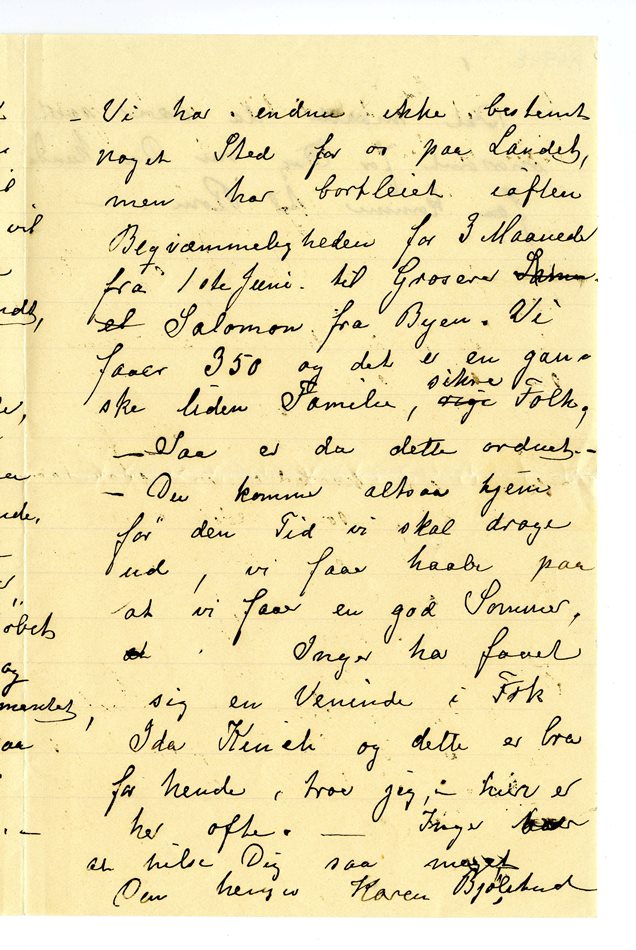 - Vi har endnu ikke bestemt
noget Sted for os paa Landet,
men har bortleiet iaften
Beqvæmmeligheden for 3 Maaneder
fra 1ste Juni til Groserer
et Salomon fra Byen. Vi
faaer 350 og det er en gan-
ske liden Familie, sikre Folk,
- Saa er da dette ordnet. -
- Du komme altsaa hjem
før den Tid vi skal drage
ud, vi faaer haabe paa
at vi faaer en god Sommer,
at Inger ha faaet
sig en Veninde i Frk
Ida Kinck og dette er bra
for hende, troe jeg, - hun er
her ofte. — Inger
at hilse Dig saa meget
Din hengivne Karen Bjølstad